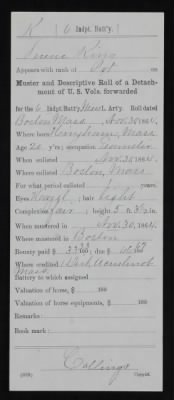 K | 6 | Indpt. Batt'y.
King
Appears with rank of Pvt on
Muster and Descriptive Roll of a Detach-
ment of U. S. Vols. forwarded
for the 6 Indpt. Batt'y, Mass. Lt. Arty. Roll dated
Boston Mass Nov. 30, 1864.
Where born Hingham, Mass
Age 20 y'rs; occupation
When enlisted Nov. 30, 1864.
Where enlisted Boston, Mass
For what period enlisted years.
Eyes Hazel; hair light
Complexion fair; height 5 ft. in.
When mustered in Nov. 30, 1864.
Where mustered in Boston
Bounty paid $ 33 00/100; due $
Where credited
Mass
Battery to which assigned
Valuation of horse, $ 100
Valuation of horse equipments, $ 100
Remarks:
Book mark:
Collings
Copyist.